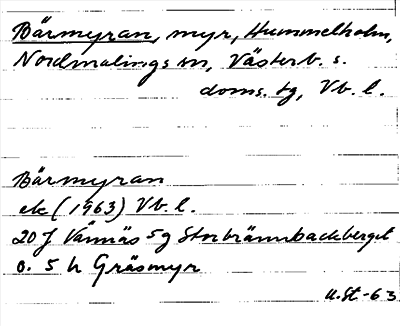 Bärmyran, myr, Hummelholm,
Nordmalings sn, Västerb. s.
doms. tg, Vb. l.
Bärmyran
ek (1963) Vb. l.
20 J Vännäs 5 g Storbrännbackberget
o. 5 h Gräsmyr
U. St -63